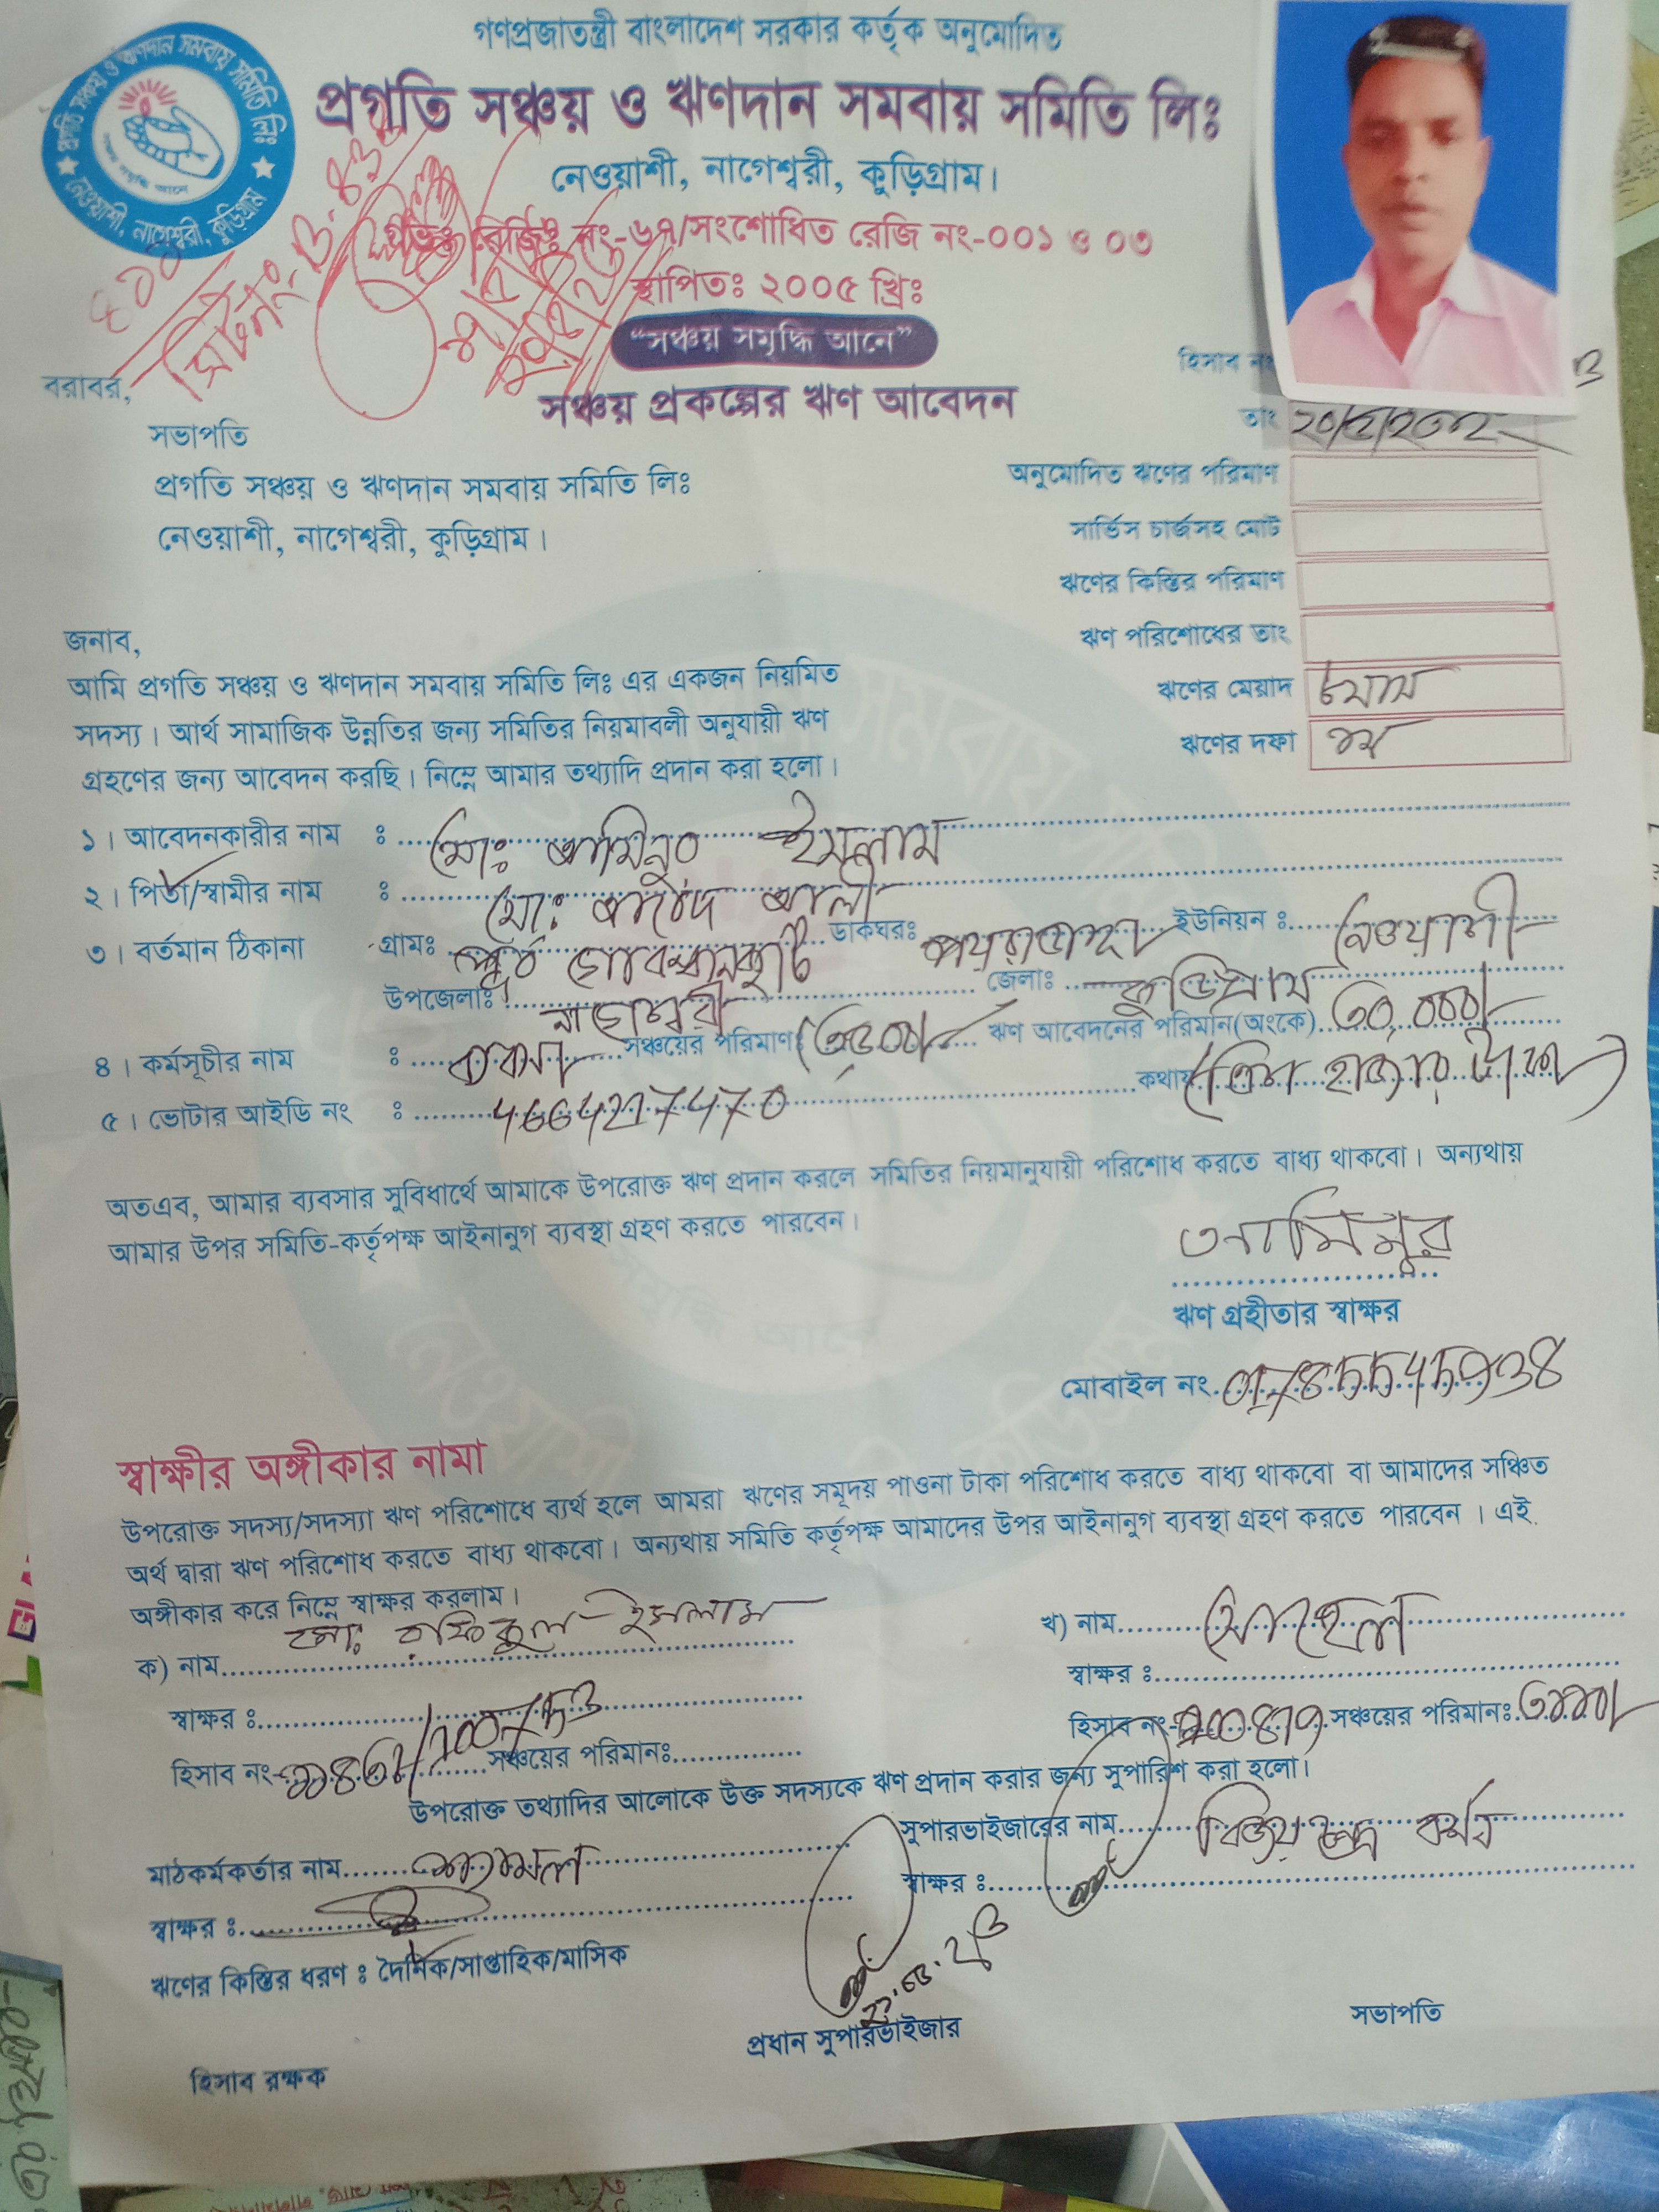 গণপ্রজাতন্ত্রী বাংলাদেশ সরকার কর্তৃক অনুমোদিত
প্রগতি সঞ্চয় ও ঋণদান সমবায় সমিতি লিঃ
নেওয়াশী, নাগেশ্বরী, কুড়িগ্রাম।
রেজিঃ নং-৬৭/সংশোধিত রেজি নং-০০১ ও ০৩
স্থাপিতঃ ২০০৫ খ্রিঃ
“সঞ্চয় সমৃদ্ধি আনে”
সঞ্চয় প্রকল্পের ঋণ আবেদন
হিসাব নং
তাং
বরাবর,
সভাপতি
প্রগতি সঞ্চয় ও ঋণদান সমবায় সমিতি লিঃ
নেওয়াশী, নাগেশ্বরী, কুড়িগ্রাম।
অনুমোদিত ঋণের পরিমাণ
সার্ভিস চার্জসহ মোট
ঋণের কিস্তির পরিমাণ
ঋণ পরিশোধের তাং
ঋণের মেয়াদ
ঋণের দফা
জনাব,
আমি প্রগতি সঞ্চয় ও ঋণদান সমবায় সমিতি লিঃ এর একজন নিয়মিত
সদস্য। আর্থ সামাজিক উন্নতির জন্য সমিতির নিয়মাবলী অনুযায়ী ঋণ
গ্রহণের জন্য আবেদন করছি। নিম্নে আমার তথ্যাদি প্রদান করা হলো।
১। আবেদনকারীর নাম : মোঃ আমিনুর ইসলাম
২। পিতা/স্বামীর নাম : মোঃ আলী
৩। বর্তমান ঠিকানা গ্রামঃ পূর্ব ডাকঘরঃ পয়রাডাঙ্গা ইউনিয়ন : নেওয়াশী
উপজেলাঃ নাগেশ্বরী জেলাঃ কুড়িগ্রাম
৪। কর্মসূচীর নাম : ব্যবসা সঞ্চয়ের পরিমাণ ঋণ আবেদনের পরিমান(অংকে) ৩০,০০০/
কথায় (ত্রিশ হাজার টাকা)
৫। ভোটার আইডি নং : 4664217470
অতএব, আমার ব্যবসার সুবিধার্থে আমাকে উপরোক্ত ঋণ প্রদান করলে সমিতির নিয়মানুযায়ী পরিশোধ করতে বাধ্য থাকবো। অন্যথায়
আমার উপর সমিতি-কর্তৃপক্ষ আইনানুগ ব্যবস্থা গ্রহণ করতে পারবেন।
আমিনুর
ঋণ গ্রহীতার স্বাক্ষর
মোবাইল নং
স্বাক্ষীর অঙ্গীকার নামা
উপরোক্ত সদস্য/সদস্যা ঋণ পরিশোধে ব্যর্থ হলে আমরা ঋণের সমূদয় পাওনা টাকা পরিশোধ করতে বাধ্য থাকবো বা আমাদের সঞ্চিত
অর্থ দ্বারা ঋণ পরিশোধ করতে বাধ্য থাকবো। অন্যথায় সমিতি কর্তৃপক্ষ আমাদের উপর আইনানুগ ব্যবস্থা গ্রহণ করতে পারবেন । এই
অঙ্গীকার করে নিম্নে স্বাক্ষর করলাম।
ক) নাম মোঃ রফিকুল ইসলাম
খ) নাম সোহেল
স্বাক্ষর :
স্বাক্ষর :
হিসাব নং- সঞ্চয়ের পরিমানঃ
হিসাব নং- সঞ্চয়ের পরিমানঃ
উপরোক্ত তথ্যাদির আলোকে উক্ত সদস্যকে ঋণ প্রদান করার জন্য সুপারিশ করা হলো।
মাঠকর্মকর্তার নাম
সুপারভাইজারের নাম বিজয় চন্দ্র বর্মন
স্বাক্ষর :
স্বাক্ষর :
ঋণের কিস্তির ধরণ : দৈনিক/সাপ্তাহিক/মাসিক
প্রধান সুপারভাইজার
সভাপতি
হিসাব রক্ষক